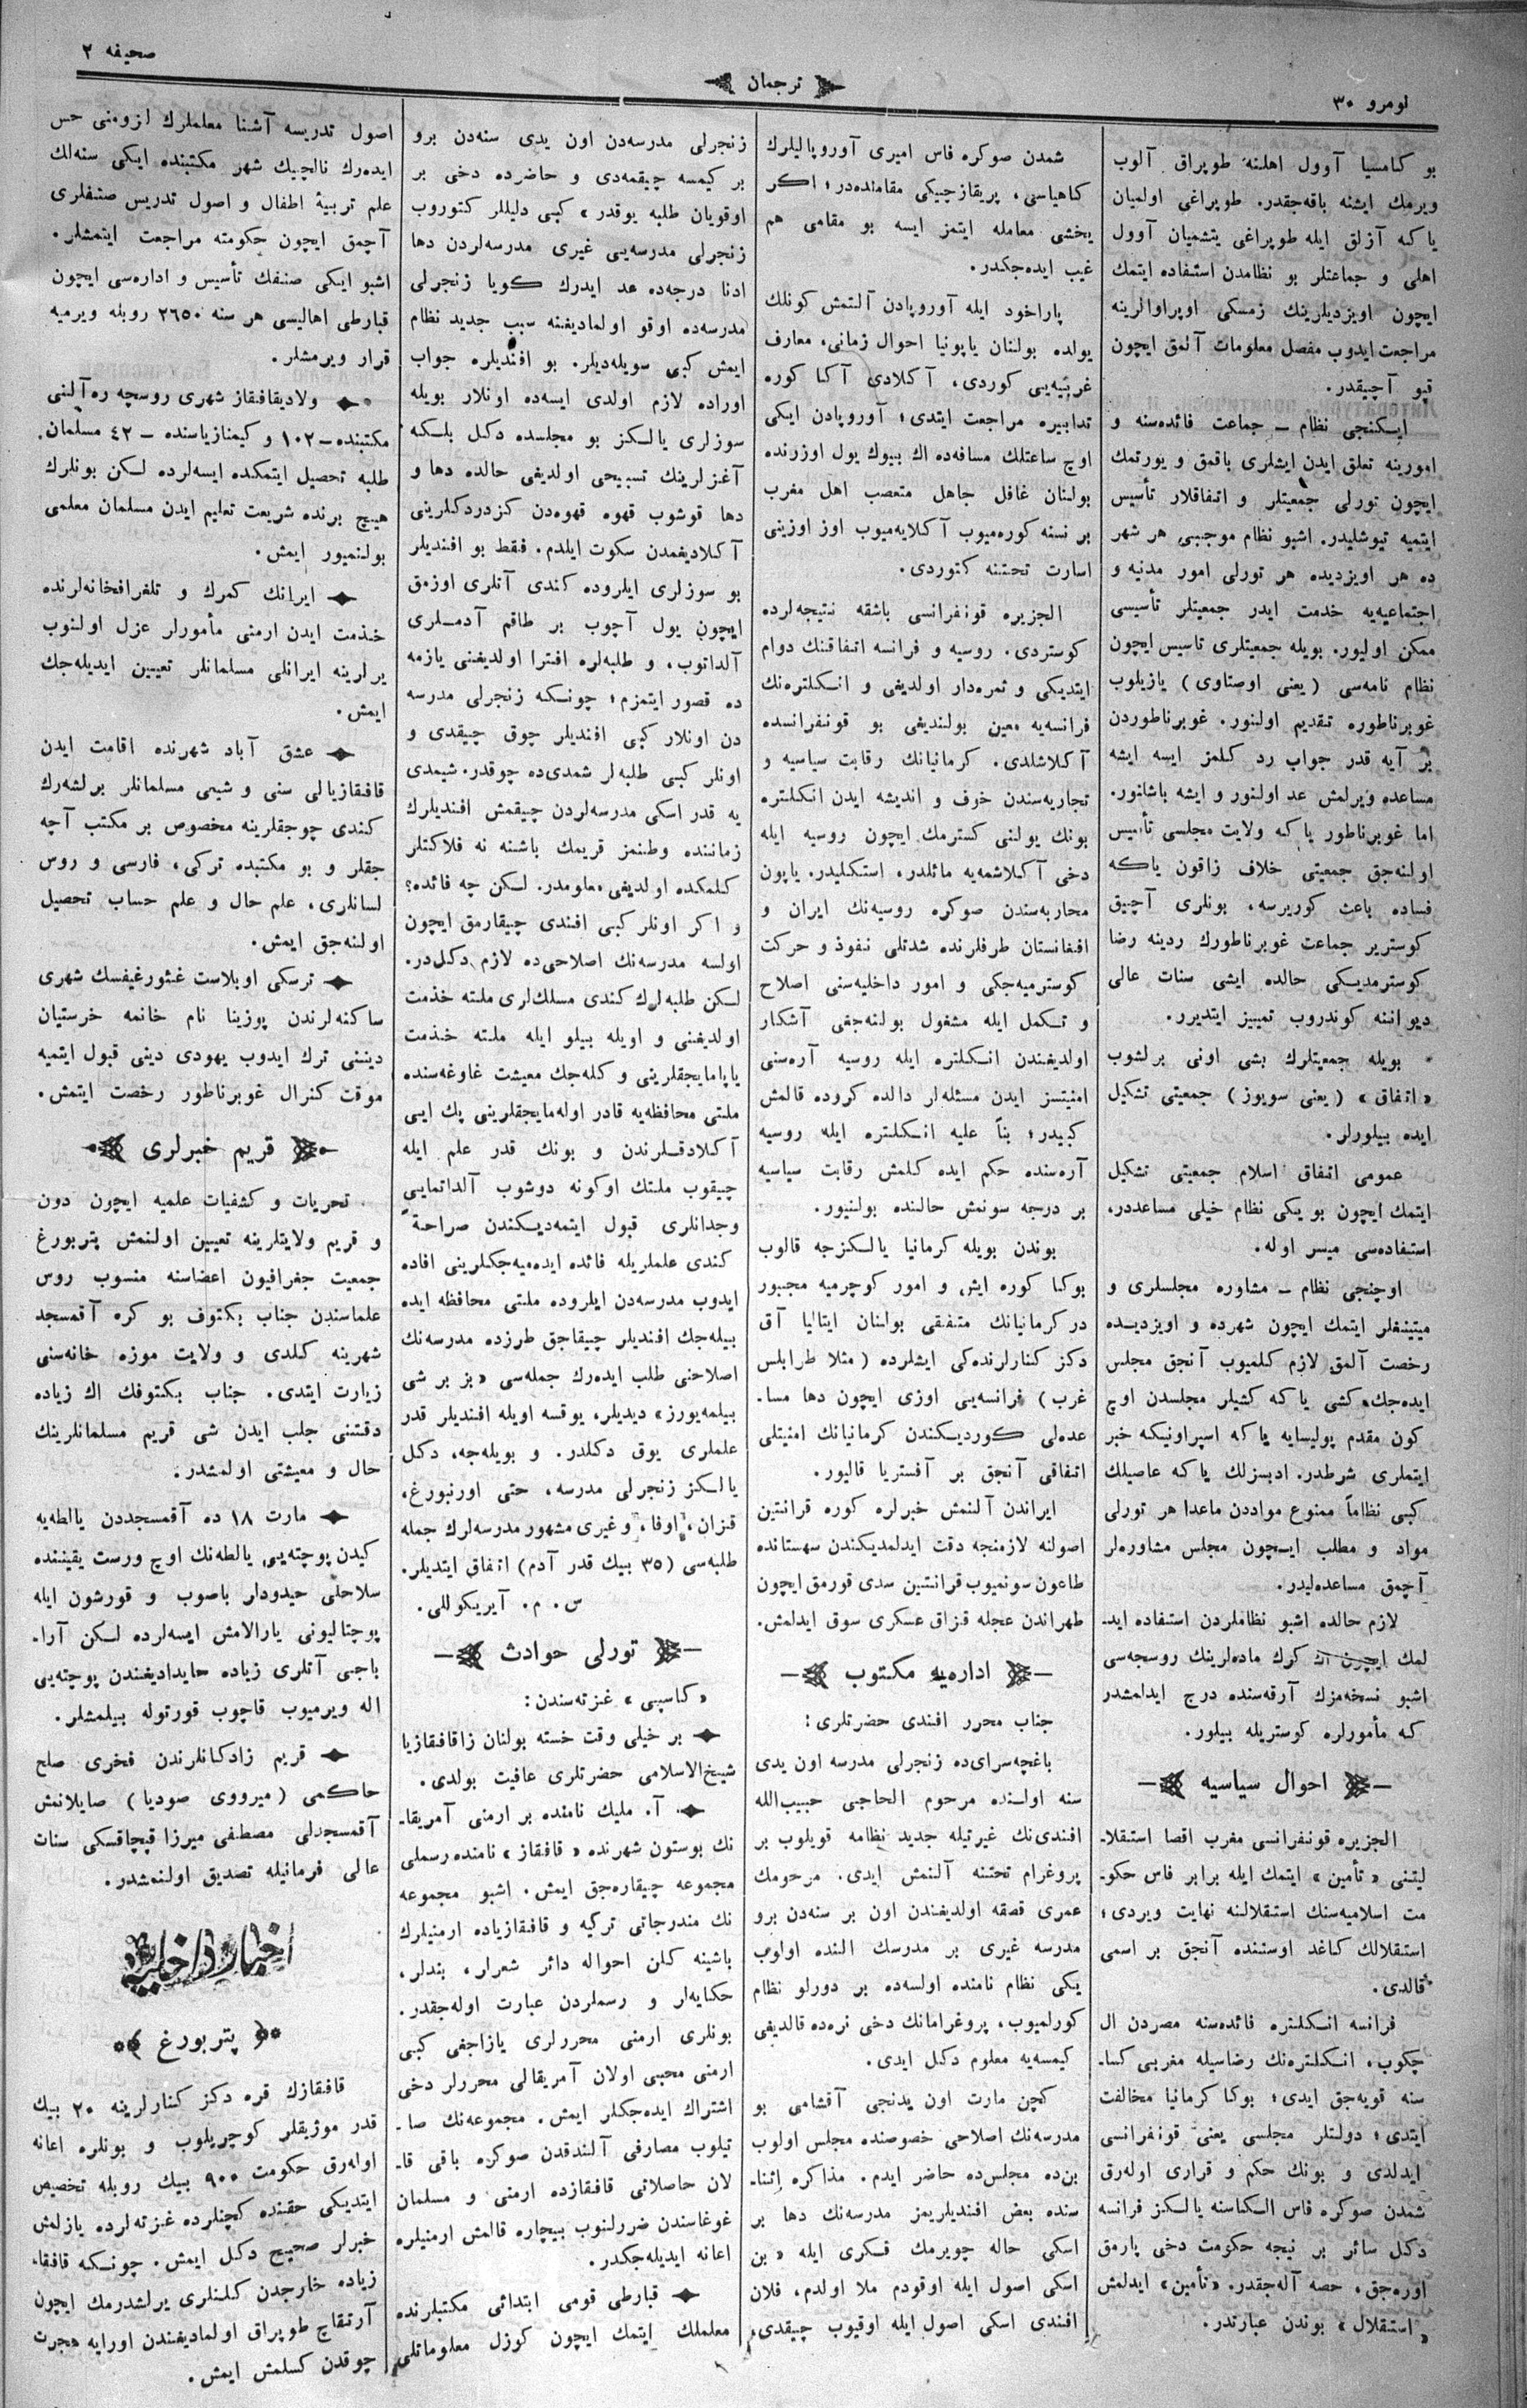 نومرو ٣٠
ترجمان
صحیفه ٢
بو كامسیا آوول اهلنه طوپراق آلوب
ویرمك ایشنه باقه‌جقدر. طوپراغی اولمیان
یا كه آزلق ایله طوپراغی یتشمیان آوول
اهلی و جماعتلر بو نظامدن استفاده ایتمك
ایچون اویزدیلرینك زمسكی اوپراوالرینه
مراجعت ایدوب مفصل معلومات آلمق ایچون
قپو آچیقدر.
ایكنجی نظام — جماعت فائده‌سنه و
امورینه تعلق ایدن ایشلری باقمق و یورتمك
ایچون تورلی جمعیتلر و اتفاقلار تأسیس
ایتمیه تیوشلیدر. اشبو نظام موجبی هر شهر
ده هر اویزدیده هر تورلی امور مدنیه و
اجتماعیه‌یه خدمت ایدر جمعیتلر تأسیسی
ممكن اولیور. بویله جمعیتلری تاسیس ایچون
نظام نامه‌سی (یعنی اوستاوی) یازیلوب
غوبرناطوره تقدیم اولنور. غوبرناطوردن
بر آیه قدر جواب رد كلمز ایسه ایشه
مساعده ویرلمش عد اولنور و ایشه باشلنور.
اما غوبرناطور یا كه ولایت مجلسی تأسیس
اولنه‌جق جمعیتی خلاف زاقون یاكه
فساده باعث كوریرسه، بونلری آچیق
كوستریر جماعت غوبرناطورك ردینه رضا
كوسترمدیكی حالده ایشی سنات عالی
دیواننه كوندروب تمییز ایتدیرر.
بویله جمعیتلرك بشی اونی برلشوب
«اتفاق» (یعنی سویوز) جمعیتی تشكیل
ایده بیلورلر.
عمومی اتفاق اسلام جمعیتی تشكیل
ایتمك ایچون بو یكی نظام خیلی مساعددر،
استفاده‌سی میسر اوله.
اوچنجی نظام — مشاوره مجلسلری و
میتینغلر ایتمك ایچون شهرده و اویزدیده
رخصت آلمق لازم كلمیوب آنجق مجلس
ایده‌جك كشی یا كه كشیلر مجلسدن اوچ
كون مقدم پولیسایه یا كه اسپراونیكه خبر
ایتملری شرطدر. ادبسزلك یا كه عاصیلك
كبی نظاماً ممنوع مواددن ماعدا هر تورلی
مواد و مطلب ایچون مجلس مشاوره‌لر
آچمق مساعده‌لیدر.
لازم حالده اشبو نظاملردن استفاده ایده‌
لمك ایچون اك كرك ماده‌لرینك روسجه‌سی
اشبو نسخه‌مزك آرقه‌سنده درج ایدلمشدر
كه مأمورلره كوستریله بیلور.
احوال سیاسیه
الجزیره قونفرانسی مغرب اقصا استقلا-
لیتنی «تأمین» ایتمك ایله برابر فاس حكو-
مت اسلامیه‌سنك استقلالنه نهایت ویردی؛
استقلالك كاغد اوستنده آنجق بر اسمی
قالدی.
فرانسه انكلتره فائده‌سنه مصردن ال
چكوب، انكلتره‌نك رضاسیله مغربی كسا-
سنه قویه‌جق ایدی؛ بوكا كرمانیا مخالفت
ایتدی؛ دولتلر مجلسی یعنی قونفرانسی
ایدلدی و بونك حكم و قراری اوله‌رق
شمدن صوكره فاس الكاسنه یالكز فرانسه
دكل سائر بر نیجه حكومت دخی پارمق
اوره‌جق، حصه آله‌جقدر. «تأمین» ایدلمش
«استقلال» بوندن عبارتدر.
شمدن صوكره فاس امیری آوروپالیلرك
كاهیاسی، پریقازچیكی مقامنده‌در؛ اكر
یخشی معامله ایتمز ایسه بو مقامی هم
غیب ایده‌جكدر.
پاراخود ایله آوروپادن آلتمش كونلك
یولده بولنان یاپونیا احوال زمانی، معارف
غربیه‌یی كوردی، آكلادی آكا كوره
تدابیره مراجعت ایتدی؛ آوروپادن ایكی
اوچ ساعتلك مسافه‌ده اك بیوك یول اوزرنده
بولنان غافل جاهل متعصب اهل مغرب
بر نسنه كوره‌میوب آكلایه‌میوب اوز اوزینی
اسارت تحتنه كتوردی.
الجزیره قونفرانسی باشقه نتیجه‌لرده
كوستردی. روسیه و فرانسه اتفاقنك دوام
ایتدیكی و ثمره‌دار اولدیغی و انكلتره‌نك
فرانسه‌یه معین بولندیغی بو قونفرانسده
آكلاشلدی. كرمانیانك رقابت سیاسیه و
تجاریه‌سندن خوف و اندیشه ایدن انكلتره
بونك یولنی كسترمك ایچون روسیه ایله
دخی آكلاشمه‌یه مائلدر، استكلیدر. یاپون
محاربه‌سندن صوكره روسیه‌نك ایران و
افغانستان طرفلرنده شدتلی نفوذ و حركت
كوسترمیه‌جكی و امور داخلیه‌سنی اصلاح
و تكمل ایله مشغول بولنه‌جغی آشكار
اولدیغندن انكلتره ایله روسیه آره‌سنی
امنیتسز ایدن مسئله‌لر دالده كروده قالمش
كبیدر؛ بناً علیه انكلتره ایله روسیه
آره‌سنده حكم ایده كلمش رقابت سیاسیه
بر درجه سونمش حالنده بولنیور.
بوندن بویله كرمانیا یالكزجه قالوب
بوكا كوره ایش و امور كوچرمیه مجبور
در كرمانیانك متفقی بولنان ایتالیا آق
دكز كنارلرنده‌كی ایشلرده (مثلا طرابلس
غرب) فرانسه‌یی اوزی ایچون دها مسا-
عده‌لی كوردیكندن كرمانیانك امنیتلی
اتفاقی آنجق بر آفستریا قالیور.
ایراندن آلنمش خبرلره كوره قرانتین
اصولنه لازمنجه دقت ایدلمدیكندن سهستانده
طاعون سونمیوب قرانتین سدی قورمق ایچون
طهراندن عجله قزاق عسكری سوق ایدلمش.
اداره‌یه مكتوب
جناب محرر افندی حضرتلری:
باغچه‌سرای‌ده زنجرلی مدرسه اون یدی
سنه اولنده مرحوم الحاجی حبیب‌الله
افندی‌نك غیرتیله جدید نظامه قویلوب بر
پروغرام تحتنه آلنمش ایدی. مرحومك
عمری قصقه اولدیغندن اون بر سنه‌دن برو
مدرسه غیری بر مدرسك النده اولوب
یكی نظام نامنده اولسه‌ده بر دورلو نظام
كورلمیوب، پروغرامانك دخی نره‌ده قالدیغی
كیمسه‌یه معلوم دكل ایدی.
كچن مارت اون یدنجی آقشامی بو
مدرسه‌نك اصلاحی خصوصنده مجلس اولوب
بن‌ده مجلس‌ده حاضر ایدم. مذاكره اثنا-
سنده بعض افندیلریمز مدرسه‌نك دها بر
اسكی حاله چویرمك فكری ایله «بن
اسكی اصول ایله اوقودم ملا اولدم، فلان
افندی اسكی اصول ایله اوقیوب چیقدی،
زنجرلی مدرسه‌دن اون یدی سنه‌دن برو
بر كیمسه چیقمه‌دی و حاضرده دخی بر
اوقویان طلبه یوقدر» كبی دلیللر كتوروب
زنجرلی مدرسه‌یی غیری مدرسه‌لردن دها
ادنا درجه‌ده عد ایدرك كویا زنجرلی
مدرسه‌ده اوقو اولمادیغنه سبب جدید نظام
ایمش كبی سویله‌دیلر. بو افندیلره جواب
اوراده لازم اولدی ایسه‌ده اونلار بویله
سوزلری یالكز بو مجلسده دكل بلكه
آغزلرینك تسبیحی اولدیغی حالده دها و
دها قوشوب قهوه قهوه‌دن كزدردكلرینی
آكلادیغمدن سكوت ایلدم. فقط بو افندیلر
بو سوزلری ایلروده كندی آتلری اوزمق
ایچون یول آچوب بر طاقم آدملری
آلداتوب، و طلبه‌لره افترا اولدیغنی یازمه
ده قصور ایتمزم؛ چونكه زنجرلی مدرسه
دن اونلار كبی افندیلر چوق چیقدی و
اونلر كبی طلبه‌لر شمدی‌ده چوقدر. شیمدی
یه قدر اسكی مدرسه‌لردن چیقمش افندیلرك
زماننده وطنمز قریمك باشنه نه فلاكتلر
كلمكده اولدیغی معلومدر. لكن چه فائده؟
و اكر اونلر كبی افندی چیقارمق ایچون
اولسه مدرسه‌نك اصلاحی‌ده لازم دكل‌در.
لكن طلبه‌لرك كندی مسلك‌لری ملته خذمت
اولدیغنی و اویله بیلو ایله ملته خذمت
یاپامایجقلرینی و كله‌جك معیشت غاوغه‌سنده
ملتی محافظه‌یه قادر اوله‌مایجقلرینی پك ایی
آكلادقلرندن و بونك قدر علم ایله
چیقوب ملتك اوكونه دوشوب آلداتمایی
وجدانلری قبول ایتمه‌دیكندن صراحةً
كندی علملریله فائده ایده‌میه‌جكلرینی افاده
ایدوب مدرسه‌دن ایلروده ملتی محافظه ایده
بیله‌جك افندیلر چیقاجق طرزده مدرسه‌نك
اصلاحنی طلب ایده‌رك جمله‌سی «بز بر شی
بیلمه‌یورز» دیدیلر، یوقسه اویله افندیلر قدر
علملری یوق دكلدر. و بویله‌جه، دكل
یالكز زنجرلی مدرسه، حتی اورنبورغ،
قزان، اوفا، و غیری مشهور مدرسه‌لرك جمله
طلبه‌سی (٣٥ بیك قدر آدم) اتفاق ایتدیلر.
س. م. آیریكوللی.
تورلی حوادث
«كاسپی» غزته‌سندن:
بر خیلی وقت خسته بولنان زاقافقازیا
شیخ‌الاسلامی حضرتلری عافیت بولدی.
آ. ملیك نامنده بر ارمنی آمریقا-
نك بوستون شهرنده «قافقاز» نامنده رسملی
مجموعه چیقاره‌جق ایمش. اشبو مجموعه
نك مندرجاتی تركیه و قافقازیاده ارمنیلرك
باشینه كلن احواله دائر شعرلر، بندلر،
حكایه‌لر و رسملردن عبارت اوله‌جقدر.
بونلری ارمنی محررلری یازاجغی كبی
ارمنی محبی اولان آمریقالی محررلر دخی
اشتراك ایده‌جكلر ایمش. مجموعه‌نك صا-
تیلوب مصارفی آلندقدن صوكره باقی قا-
لان حاصلاتی قافقازده ارمنی و مسلمان
غوغاسندن ضررلنوب بیچاره قالمش ارمنیلره
اعانه ایدیله‌جكدر.
قبارطی قومی ابتدائی مكتبلرنده
معلملك ایتمك ایچون كوزل معلوماتلی
اصول تدریسه آشنا معلملرك لزومنی حس
ایده‌رك نالچیك شهر مكتبنده ایكی سنه‌لك
علم تربیهٔ اطفال و اصول تدریس صنفلری
آچمق ایچون حكومته مراجعت ایتمشلر.
اشبو ایكی صنفك تأسیس و اداره‌سی ایچون
قبارطی اهالیسی هر سنه ٢٦٥٠ روبله ویرمیه
قرار ویرمشلر.
ولادیقافقاز شهری روسچه ره‌آلنی
مكتبنده — ١٠٢ و كیمنازیاسنده — ٤٢ مسلمان
طلبه تحصیل ایتمكده ایسه‌لرده لكن بونلرك
هیچ برنده شریعت تعلیم ایدن مسلمان معلمی
بولنمیور ایمش.
ایرانك كمرك و تلغرافخانه‌لرنده
خذمت ایدن ارمنی مأمورلر عزل اولنوب
یرلرینه ایرانلی مسلمانلر تعیین ایدیله‌جك
ایمش.
عشق آباد شهرنده اقامت ایدن
قافقازیالی سنی و شیعی مسلمانلر برلشه‌رك
كندی چوجقلرینه مخصوص بر مكتب آچه
جقلر و بو مكتبده تركی، فارسی و روس
لسانلری، علم حال و علم حساب تحصیل
اولنه‌جق ایمش.
ترسكی اوبلاست شهری
ساكنه‌لرندن پوزینا نام خانمه خرستیان
دیننی ترك ایدوب یهودی دینی قبول ایتمیه
موقت كنرال غوبرناطور رخصت ایتمش.
قریم خبرلری
تحریات و كشفیات علمیه ایچون دون
و قریم ولایتلرینه تعیین اولنمش پتربورغ
جمعیت جغرافیون اعضاسنه منسوب روس
علماسندن جناب بكتوف بو كره آقمسجد
شهرینه كلدی و ولایت موزه خانه‌سنی
زیارت ایتدی. جناب بكتوفك اك زیاده
دقتنی جلب ایدن شی قریم مسلمانلرینك
حال و معیشتی اولمشدر.
مارت ١٨ ده آقمسجددن یالطه‌یه
كیدن پوچته‌یی یالطه‌نك اوچ ورست یقیننده
سلاحلی حیدودلر باصوب و قورشون ایله
پوچتالیونی یارالامش ایسه‌لرده لكن آرا-
باجی آتلری زیاده حایدادیغندن پوچته‌یی
اله ویرمیوب قاچوب قورتوله بیلمشلر.
قریم زادكانلرندن فخری صلح
حاكمی (میرووی صودیا) صایلانمش
آقمسجدلی مصطفی میرزا قپچاقسكی سنات
عالی فرمانیله تصدیق اولنمشدر.
اخبار داخلیه
پتربورغ
قافقازك قره دكز كنارلرینه ٢٠ بیك
قدر موژیقلر كوچریلوب و بونلره اعانه
اوله‌رق حكومت ٩٠٠ بیك روبله تخصیص
ایتدیكی حقنده كچنلرده غزته‌لرده یازلمش
خبرلر صحیح دكل ایمش. چونكه قافقا-
زیاده خارجدن كلنلری یرلشدرمك ایچون
آرتقاچ طوپراق اولمادیغندن اورایه هجرت
چوقدن كسلمش ایمش.